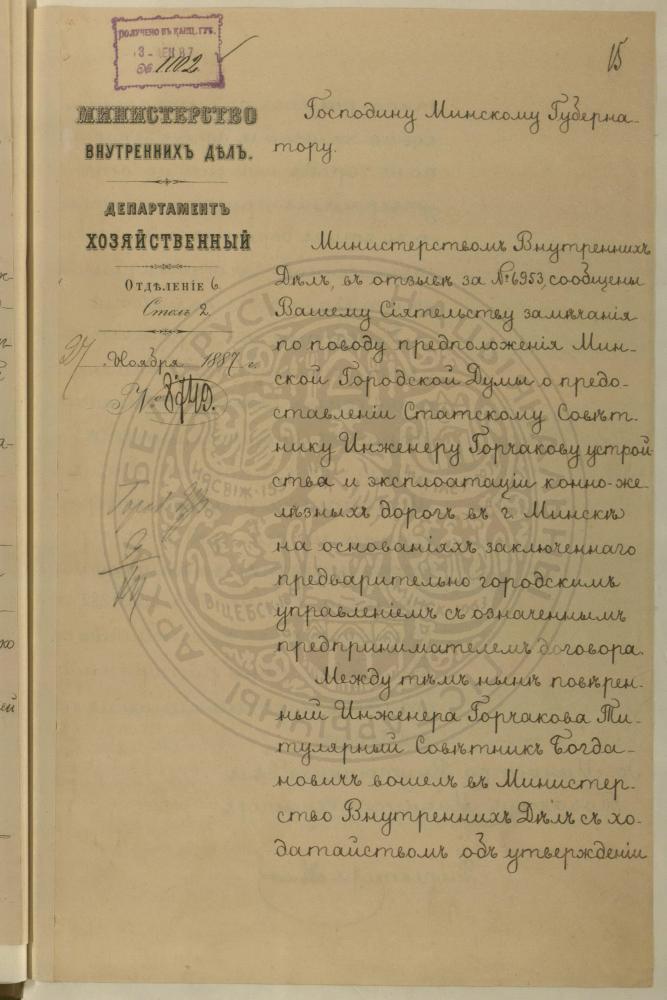 ПОЛУЧЕНО ВЪ КАНЦ. ГУБ.
1102
15
МИНИСТЕРСТВО
ВНУТРЕННИХЪ ДѢЛЪ.
ДЕПАРТАМЕНТЪ
ХОЗЯЙСТВЕННЫЙ
Отдѣленіе 6
Столъ 2.
27 Ноября 1887 г.
№
Господину Минскому Губерна-
тору.
Министерствомъ Внутреннихъ
Дѣлъ, въ отзывѣ за № 6953, сообщены
Вашему Сіятельству замѣчанія
по поводу предположенія Мин-
ской Городской Думы о предо-
ставленіи Статскому Совѣт-
нику Инженеру Горчакову устрой-
ства и эксплоатаціи конно-же-
лѣзныхъ дорогъ въ г. Минскѣ
на основаніяхъ заключеннаго
предварительно городскимъ
управленіемъ съ означеннымъ
предпринимателемъ договора.
Между тѣмъ нынѣ повѣрен-
ный Инженера Горчакова Ти-
тулярный Совѣтникъ Богда-
новичъ вошелъ въ Министер-
ство Внутреннихъ Дѣлъ съ хо-
датайствомъ объ утвержденіи